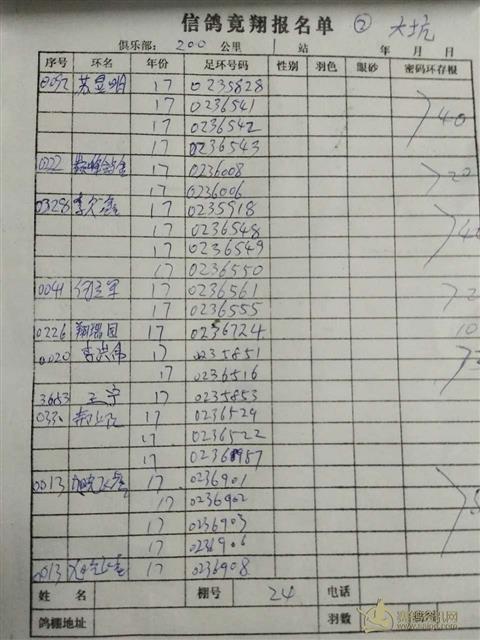 信鸽竟翔报名单 ② 大坑
俱乐部: 200 公里 站 年 月 日
序号 环名 年份 足环号码 性别 羽色 眼砂 密码环存根
0092 苏显明 17 0235828
17 0236541
17 0236542 40
17 0236543
0222 17 0236008
17 0236006 20
0328 17 0235918
17 0236548
17 0236549
17 0236550
0041 何立军 17 0236561
17 0236555
0226 翔瑞园 17 0236724 10
0020 17 0235851
17 0236516
3683 王宁 17 0235853
17 0236529
17 0236522
17
0013 17 0236901
17 0236902
17 0236903
17 0236906
0013 17 0236908
姓名 棚号 24 电话
鸽棚地址 羽数